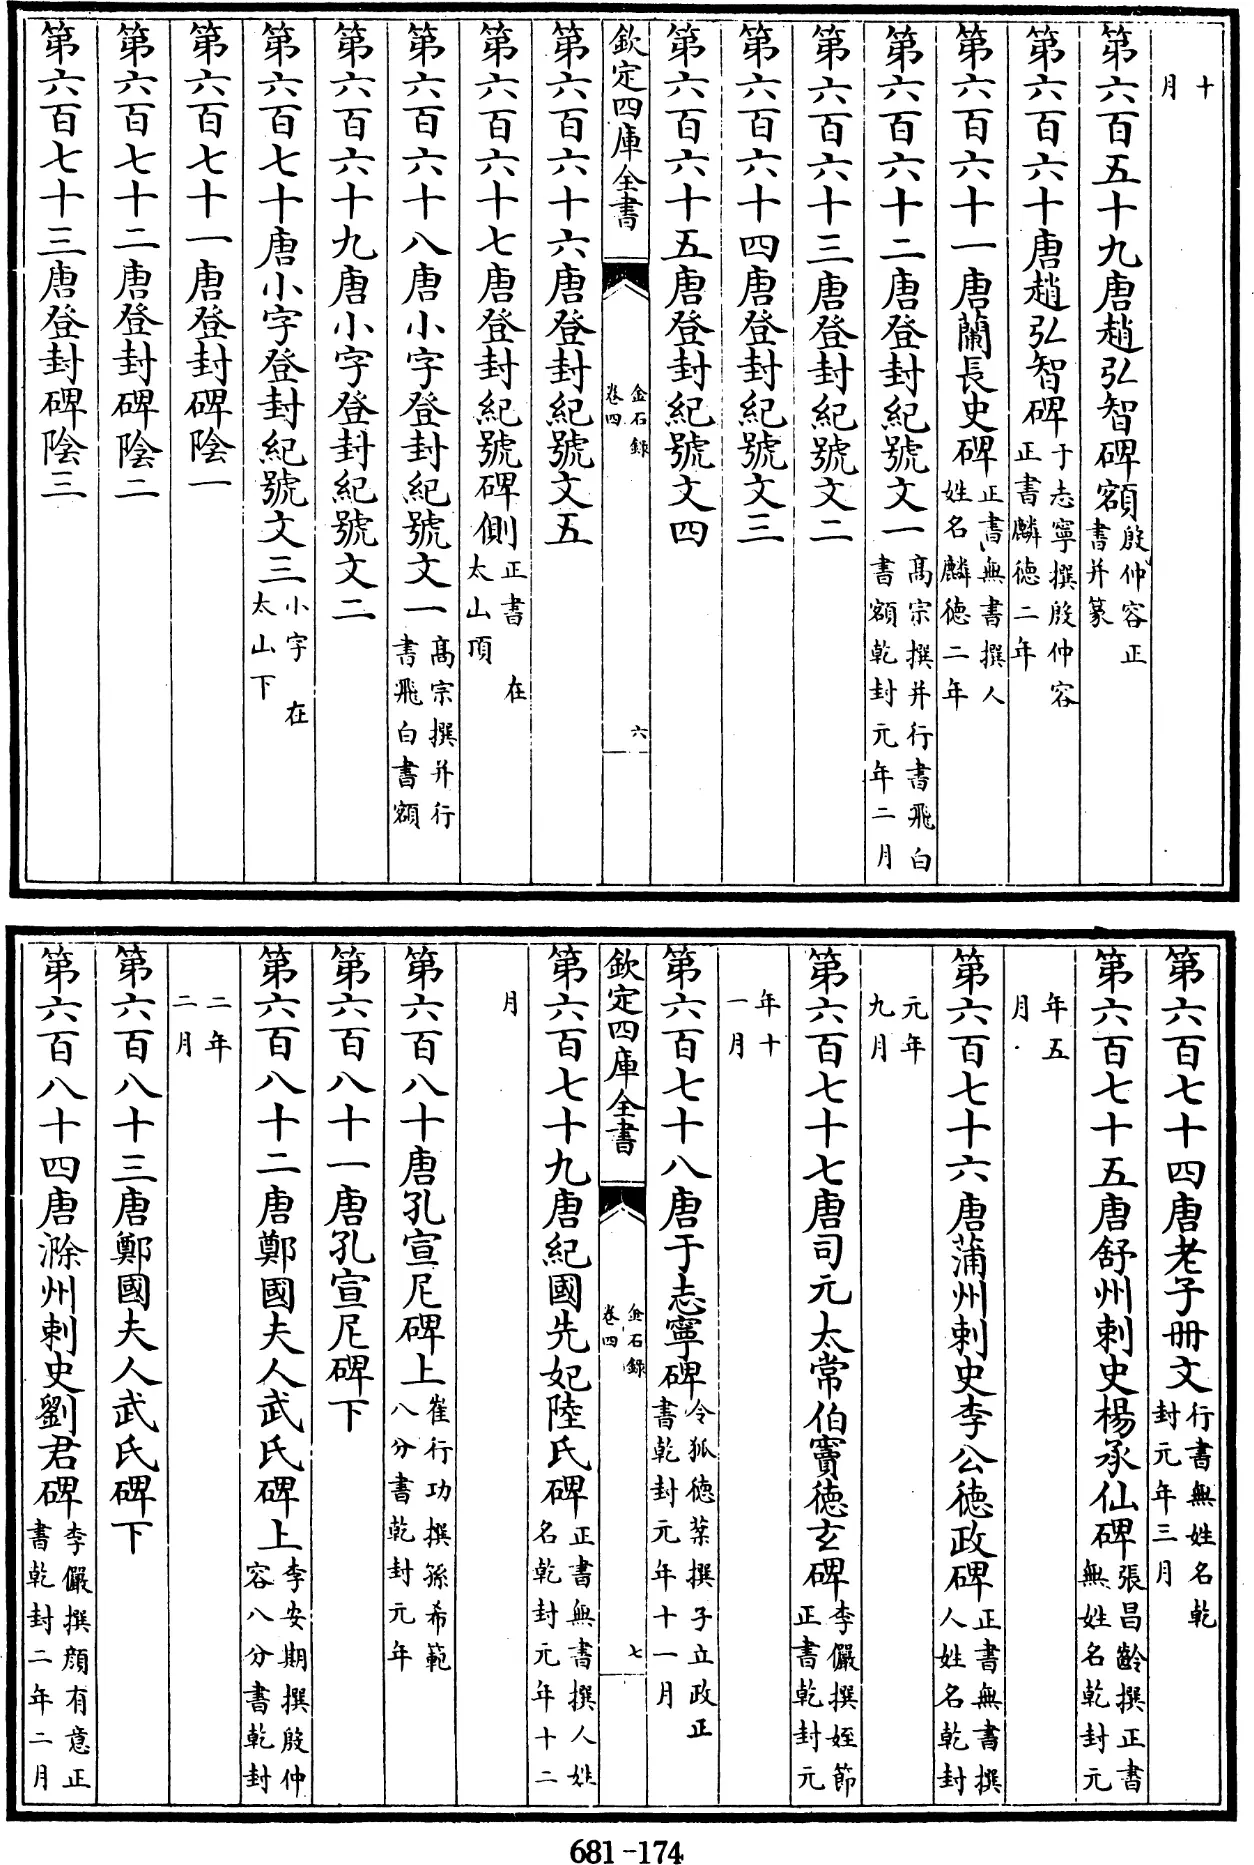 十月
第六百五十九唐趙弘智碑額殷仲容正書并篆
第六百六十唐趙弘智碑于志寧撰殷仲容正書麟徳二年
第六百六十一唐蘭長史碑正書無書撰人姓名麟徳二年
第六百六十二唐登封紀號文一髙宗撰并行書飛白書額乾封元年二月
第六百六十三唐登封紀號文二
第六百六十四唐登封紀號文三
第六百六十五唐登封紀號文四
欽定四庫全書
金石錄卷四
六
第六百六十六唐登封紀號文五
第六百六十七唐登封紀號碑側正書在太山頂
第六百六十八唐小字登封紀號文一髙宗撰并行書飛白書額
第六百六十九唐小字登封紀號文二
第六百七十唐小字登封紀號文三小字在太山下
第六百七十一唐登封碑陰一
第六百七十二唐登封碑陰二
第六百七十三唐登封碑陰三
第六百七十四唐老子冊文行書無姓名乾封元年三月
第六百七十五唐舒州刺史楊承仙碑張昌齡撰正書無姓名乾封元
年五月
第六百七十六唐蒲州刺史李公徳政碑正書無書撰人姓名乾封
元年九月
第六百七十七唐司元太常伯竇徳玄碑李儼撰姪節正書乾封元
年十一月
第六百七十八唐于志寧碑令狐徳棻撰子立政正書乾封元年十一月
欽定四庫全書
金石錄卷四
七
第六百七十九唐紀國先妃陸氏碑正書無書撰人姓名乾封元年十二
月
第六百八十唐孔宣尼碑上崔行功撰孫希範八分書乾封元年
第六百八十一唐孔宣尼碑下
第六百八十二唐鄭國夫人武氏碑上李安期撰殷仲容八分書乾封
二年二月
第六百八十三唐鄭國夫人武氏碑下
第六百八十四唐滁州刺史劉君碑李儼撰顔有意正書乾封二年二月
681-174